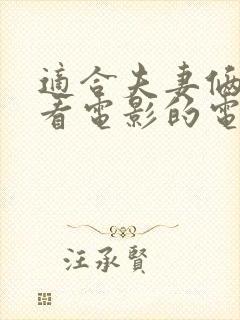 適合夫妻倆
看電影的電
汪承賢